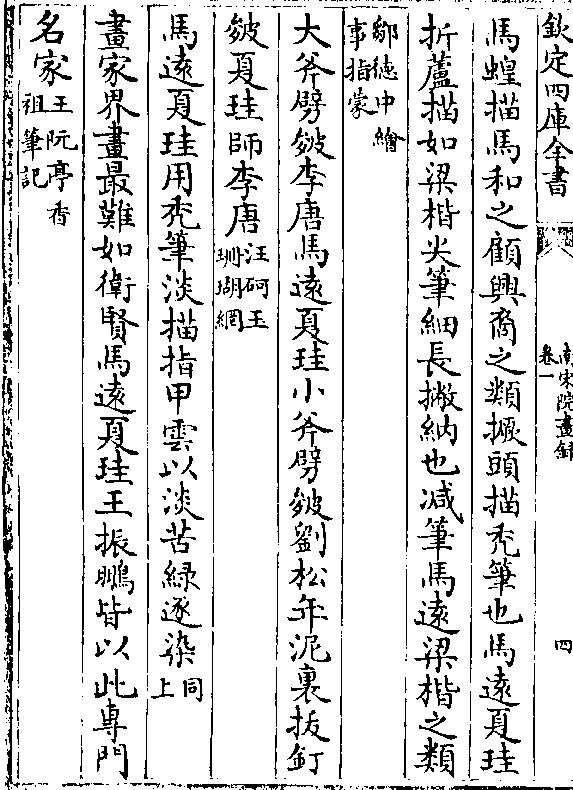 欽定四庫全書
南宋院畫録
卷一
四
馬蝗描馬和之顧興裔之類撅頭描秃筆也馬遠夏珪
折蘆描如梁楷尖筆細長撇納也减筆馬遠梁楷之類
鄒徳中繪
事指蒙
大斧劈皴李唐馬遠夏珪小斧劈皴劉松年泥裏抜釘
皴夏珪師李唐汪砢玉
珊瑚網
馬遠夏珪用秃筆淡描指甲雲以淡苦緑逐染同
上
畫家界畫最難如衛賢馬遠夏珪王振鵬皆以此專門
名家王阮亭香
祖筆記